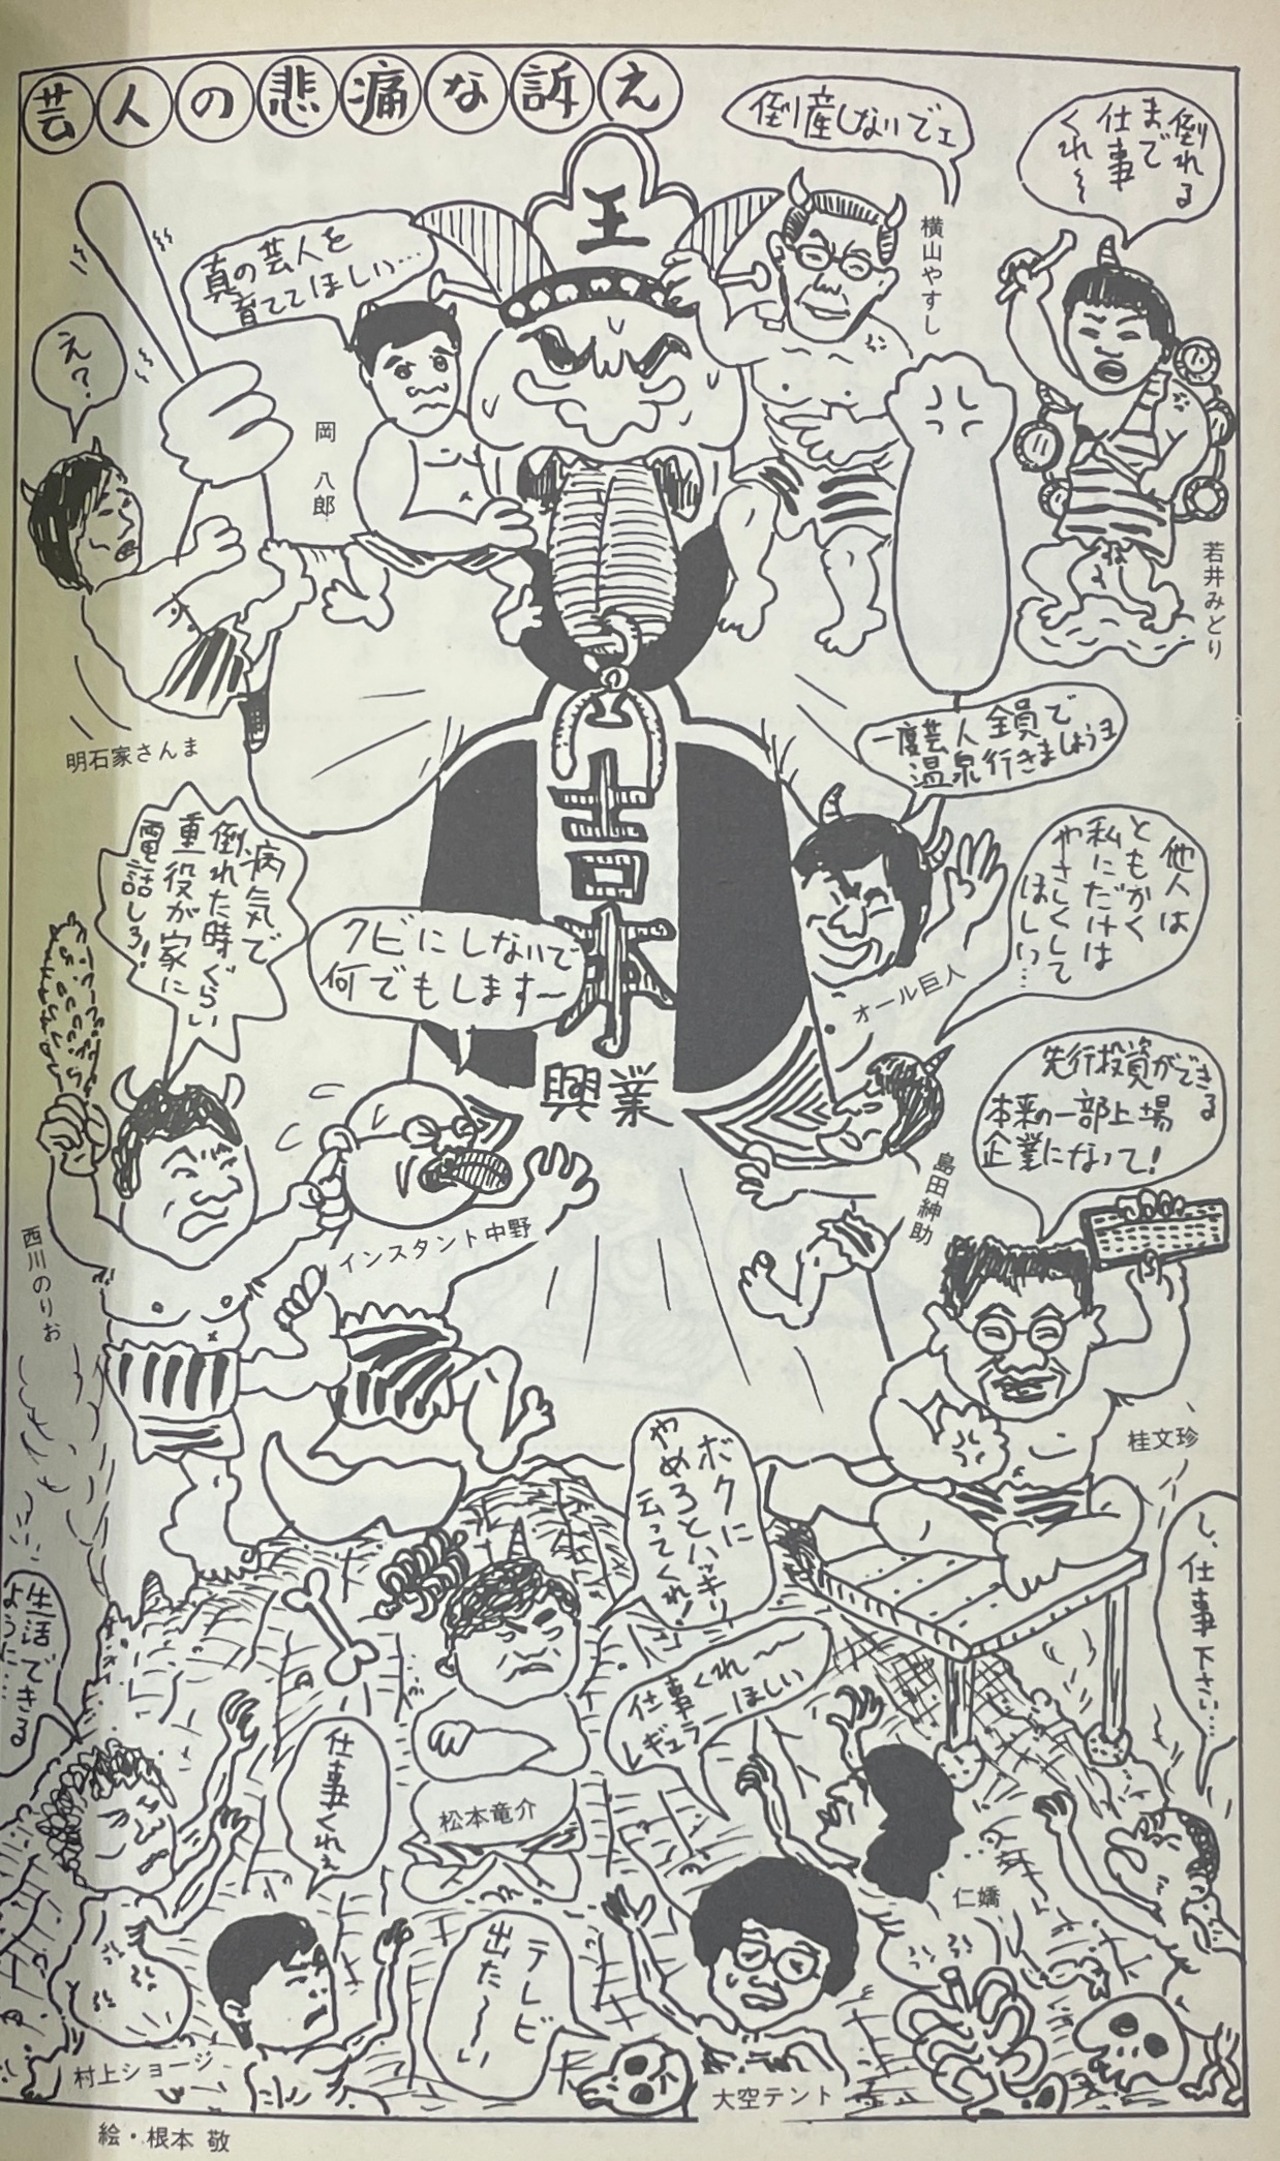 芸人の悲痛な訴え
倒れる
まで
仕事
くれ〜
若井みどり
倒産しないでェ
横山やすし
王
真の芸人を
育ててほしい…
岡 八郎
え?
明石家さんま
一度芸人全員で
温泉行きましょうヨ
オール巨人
他人は
ともかく
私にだけは
やさしくして
ほしい…
島田紳助
吉本
興業
病気で
倒れた時ぐらい
重役が家に
電話しろ!
西川のりお
クビにしないで
何でもします〜
インスタント中野
先行投資ができる
本来の一部上場
企業になって!
桂文珍
ボクに
やめろとハッキリ
云ってくれ!
松本竜介
し、仕事下さい…
仕事くれ〜
レギュラーほしい
仁嬌
生活できる
ように…
仕事くれぇ
村上ショージ
テレビ
出た〜い
大空テント
絵・根本 敬